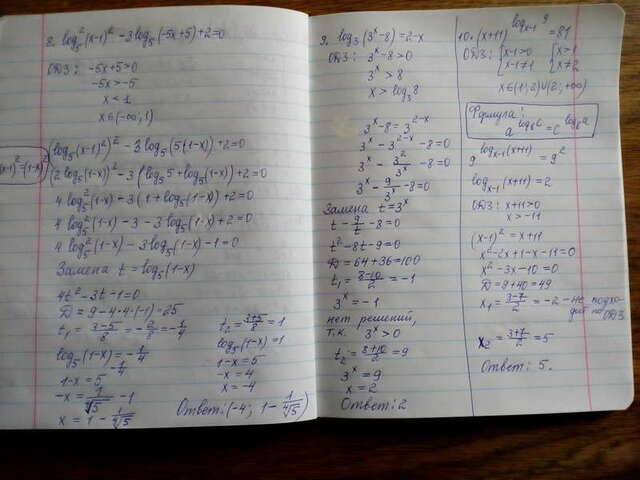 8. log₅²(x-1)² - 3log₅(-5x+5)+2=0
ОДЗ: -5x+5>0
-5x>-5
x<1
x∈(-∞;1)
(x-1)²=(1-x)²
(log₅(x-1)²)² - 3log₅(5(1-x))+2=0
(2log₅(1-x))² - 3(log₅5+log₅(1-x))+2=0
4log₅²(1-x) - 3(1+log₅(1-x))+2=0
4log₅²(1-x) - 3 - 3log₅(1-x)+2=0
4log₅²(1-x) - 3log₅(1-x) - 1=0
Замена t=log₅(1-x)
4t²-3t-1=0
D=9-4·4·(-1)=25
t₁=(3-5)/8=-2/8=-1/4
log₅(1-x)=-1/4
1-x=5^(-1/4)
-x=1/⁴√5 -1
x=1-1/⁴√5
t₂=(3+5)/8=1
log₅(1-x)=1
1-x=5
-x=4
x=-4
Ответ: (-4; 1-1/⁴√5)
9. log₃(3ˣ-8)=2-x
ОДЗ: 3ˣ-8>0
3ˣ>8
x>log₃8
3ˣ-8=3²⁻ˣ
3ˣ-3²⁻ˣ-8=0
3ˣ-3²/3ˣ-8=0
3ˣ-9/3ˣ-8=0
Замена t=3ˣ
t-9/t-8=0
t²-8t-9=0
D=64+36=100
t₁=(8-10)/2=-1
3ˣ=-1
нет решений,
т.к. 3ˣ>0
t₂=(8+10)/2=9
3ˣ=9
x=2
Ответ: 2
10. (x+11)^(log_(x-1) 9)=81
ОДЗ: {x-1>0 {x>1
x-1≠1 x≠2
x∈(1;2)∪(2;+∞)
Формула:
a^(log_b c)=c^(log_b a)
9^(log_(x-1)(x+11))=9²
log_(x-1)(x+11)=2
ОДЗ: x+11>0
x>-11
(x-1)²=x+11
x²-2x+1-x-11=0
x²-3x-10=0
D=9+40=49
x₁=(3-7)/2=-2 -не подхо-
дит по
ОДЗ
x₂=(3+7)/2=5
Ответ: 5.